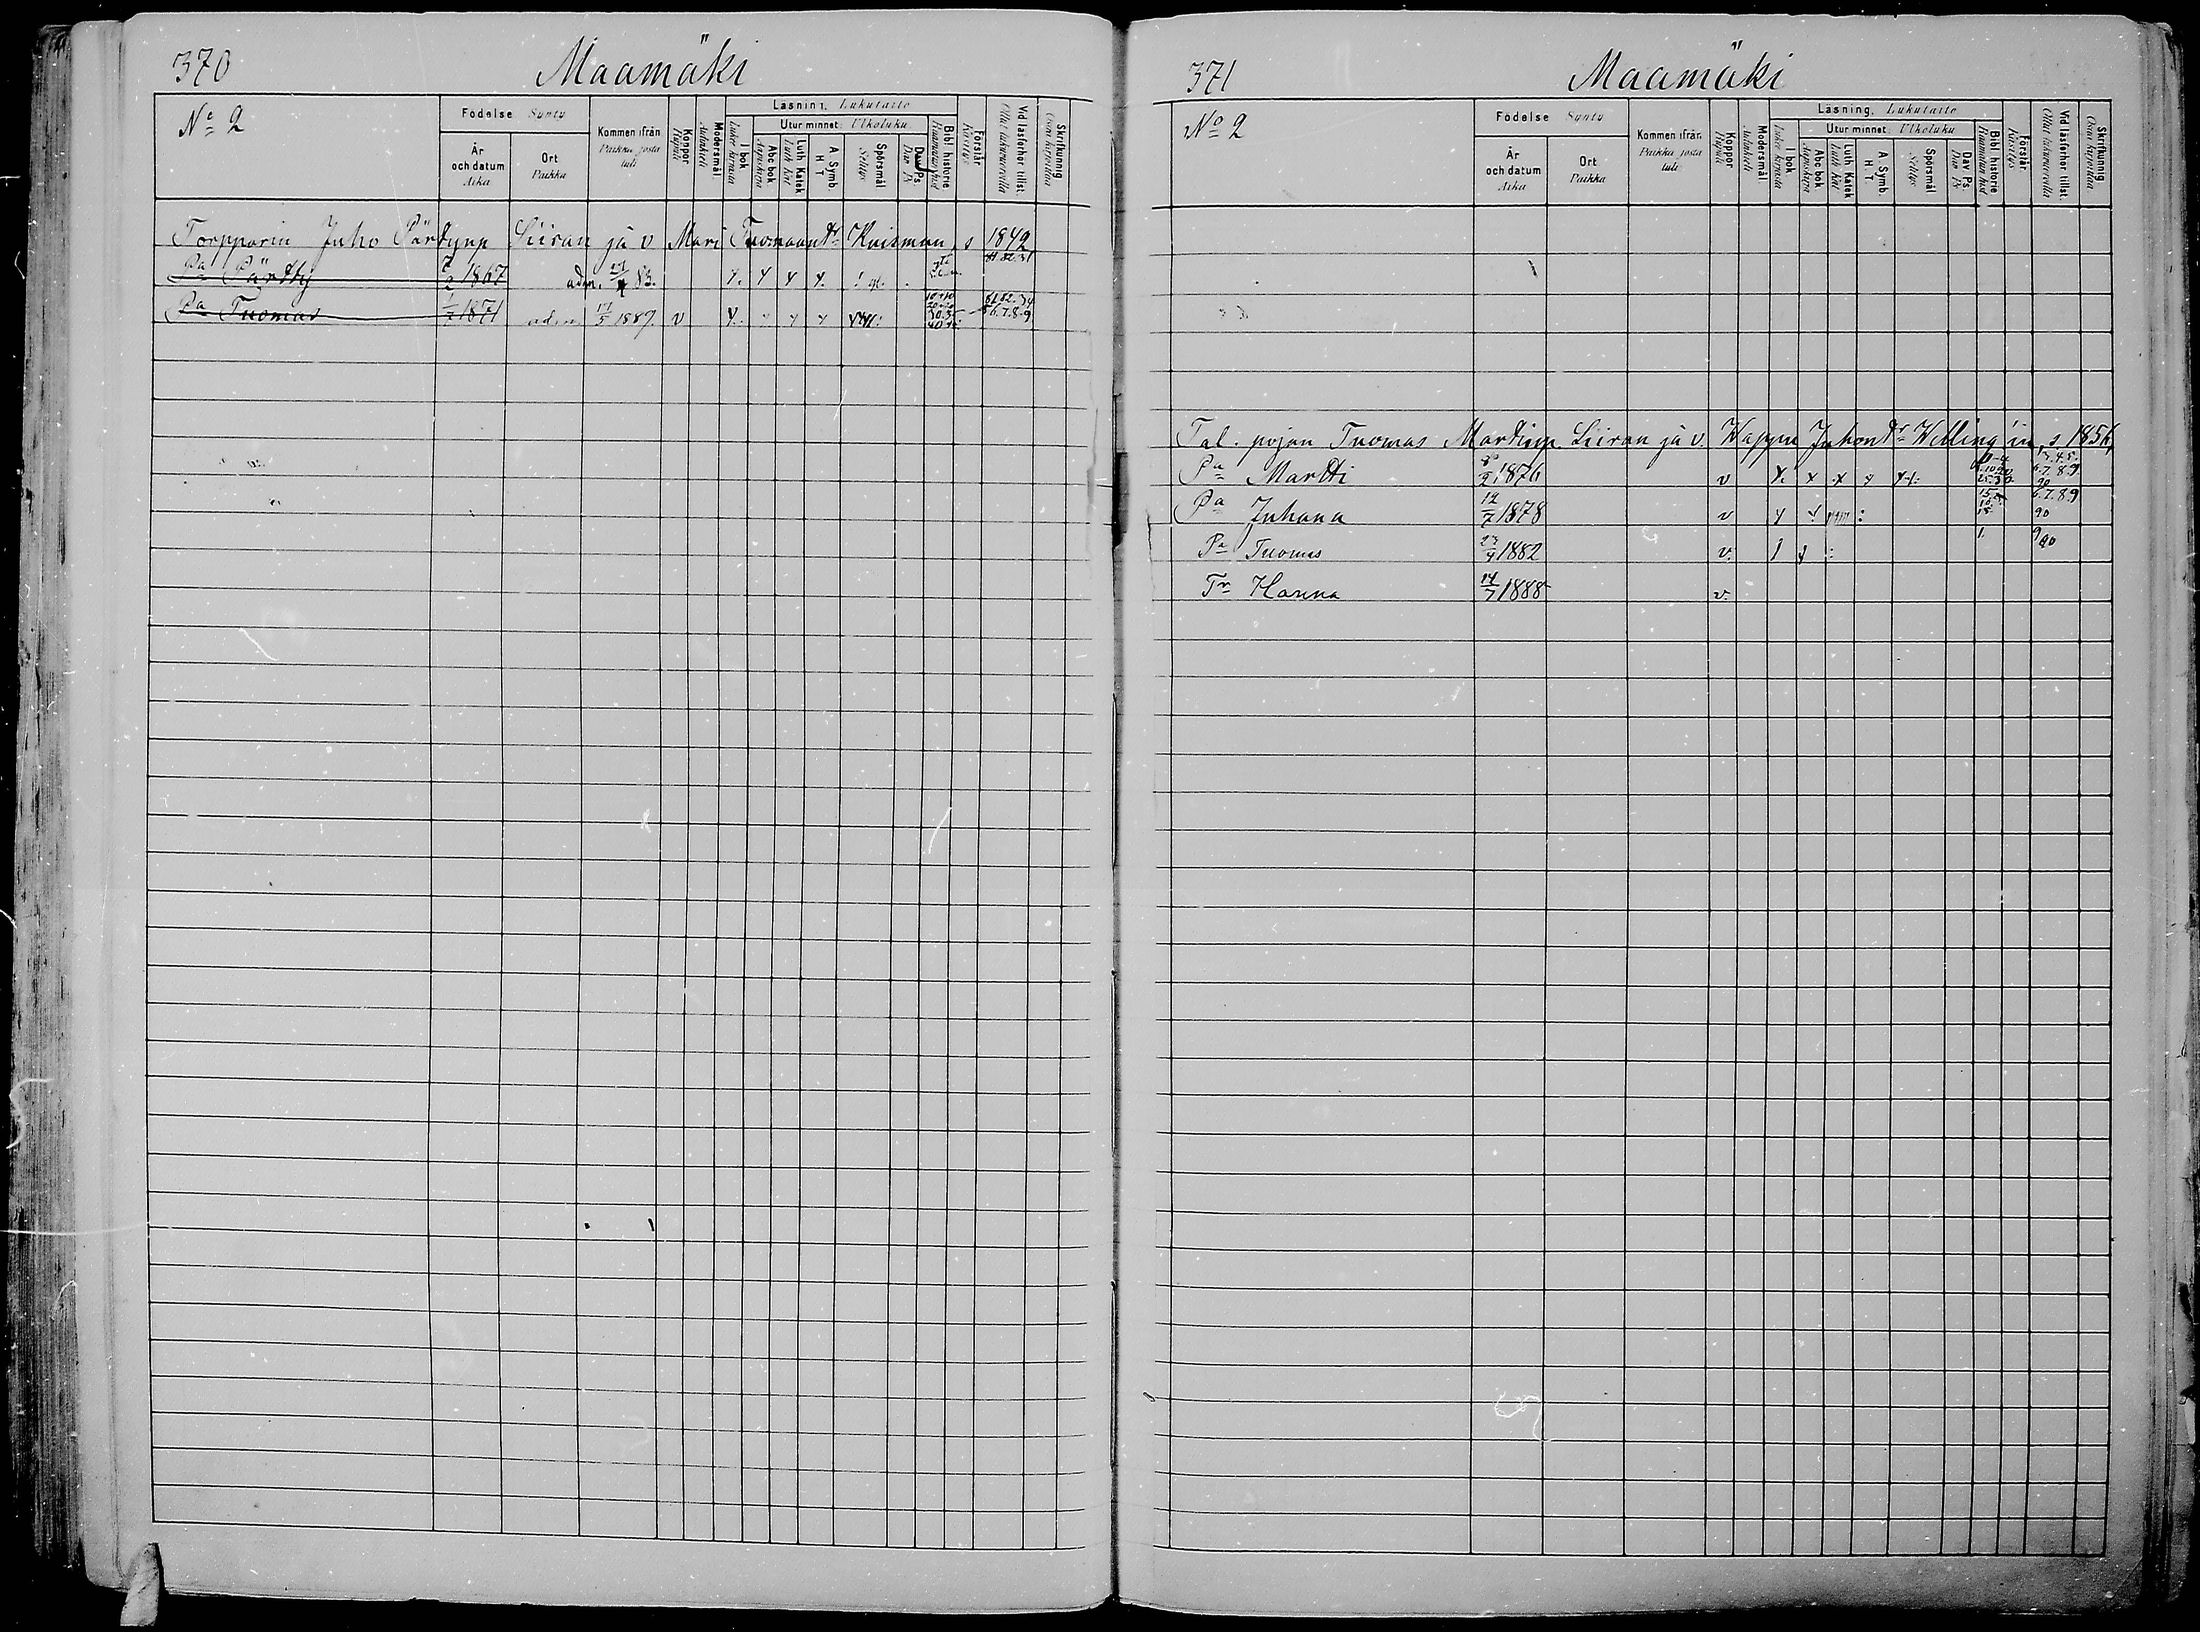 370 Maamäki
No 2
Födelse Synty
År och datum Aika
Ort Paikka
Kommen ifrån Paikka josta tuli
Koppor Rupuli
Modersmål Äidinkieli
Läsning, Lukutaito
I bok Lukee kirjasta
Utur minnet Ulkoluku
Abc bok Aapiskirja
Luth Katek Luth Kat
A. Symb. H T
Spörsmål Selitys
Dav Ps. Dav Ps
Bibl. historie Raamatun hist
Förstår Käsitys
Vid läsförhör tillst. Ollut lukuvuorolla
Skrifkunnig Osaa kirjoittaa
Torpparin Juho Pärttynp Siiran ja v Mari Tuomaantr Kuisman s 1842
Pa Pärtty 1867 adm. 83.
Pa Tuomas 1/7 1871 adm 17/5 1887. v
371 Maamäki
No 2
Födelse Synty
År och datum Aika
Ort Paikka
Kommen ifrån Paikka josta tuli
Koppor Rupuli
Modersmål Äidinkieli
Läsning, Lukutaito
I bok Lukee kirjasta
Utur minnet Ulkoluku
Abc bok Aapiskirja
Luth Katek Luth Kat
A. Symb. H. T.
Spörsmål Selitys
Dav. Ps. Dav. Ps
Bibl historie Raamatun hist
Förstår Käsitys
Vid läsförhör tillst. Ollut lukuvuorolla
Skrifkunnig Osaa kirjoittaa
Tal. pojan Tuomas Martinp. Siiran ja v. Wappu Juhontr Willing'in, s 1856
Pa Martti 8/2 1876 v 6.7.89 90
Pa Juhana 14/7 1878 v 6.7.89 90
Pa Tuomas 23/4 1882 v. 90
Tr Hanna 14/7 1888 v.